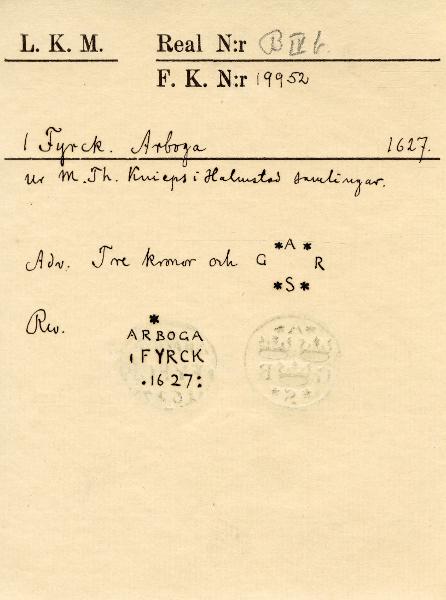 L. K. M. Real N:r B IV b.
F. K. N:r 19952
1 Fyrck. Arboga 1627.
ur M. Th. Knieps i Halmstad samlingar.
*A*
Adv. Tre kronor och G R
*S*
Rev. *
ARBOGA
1 FYRCK
.1627: